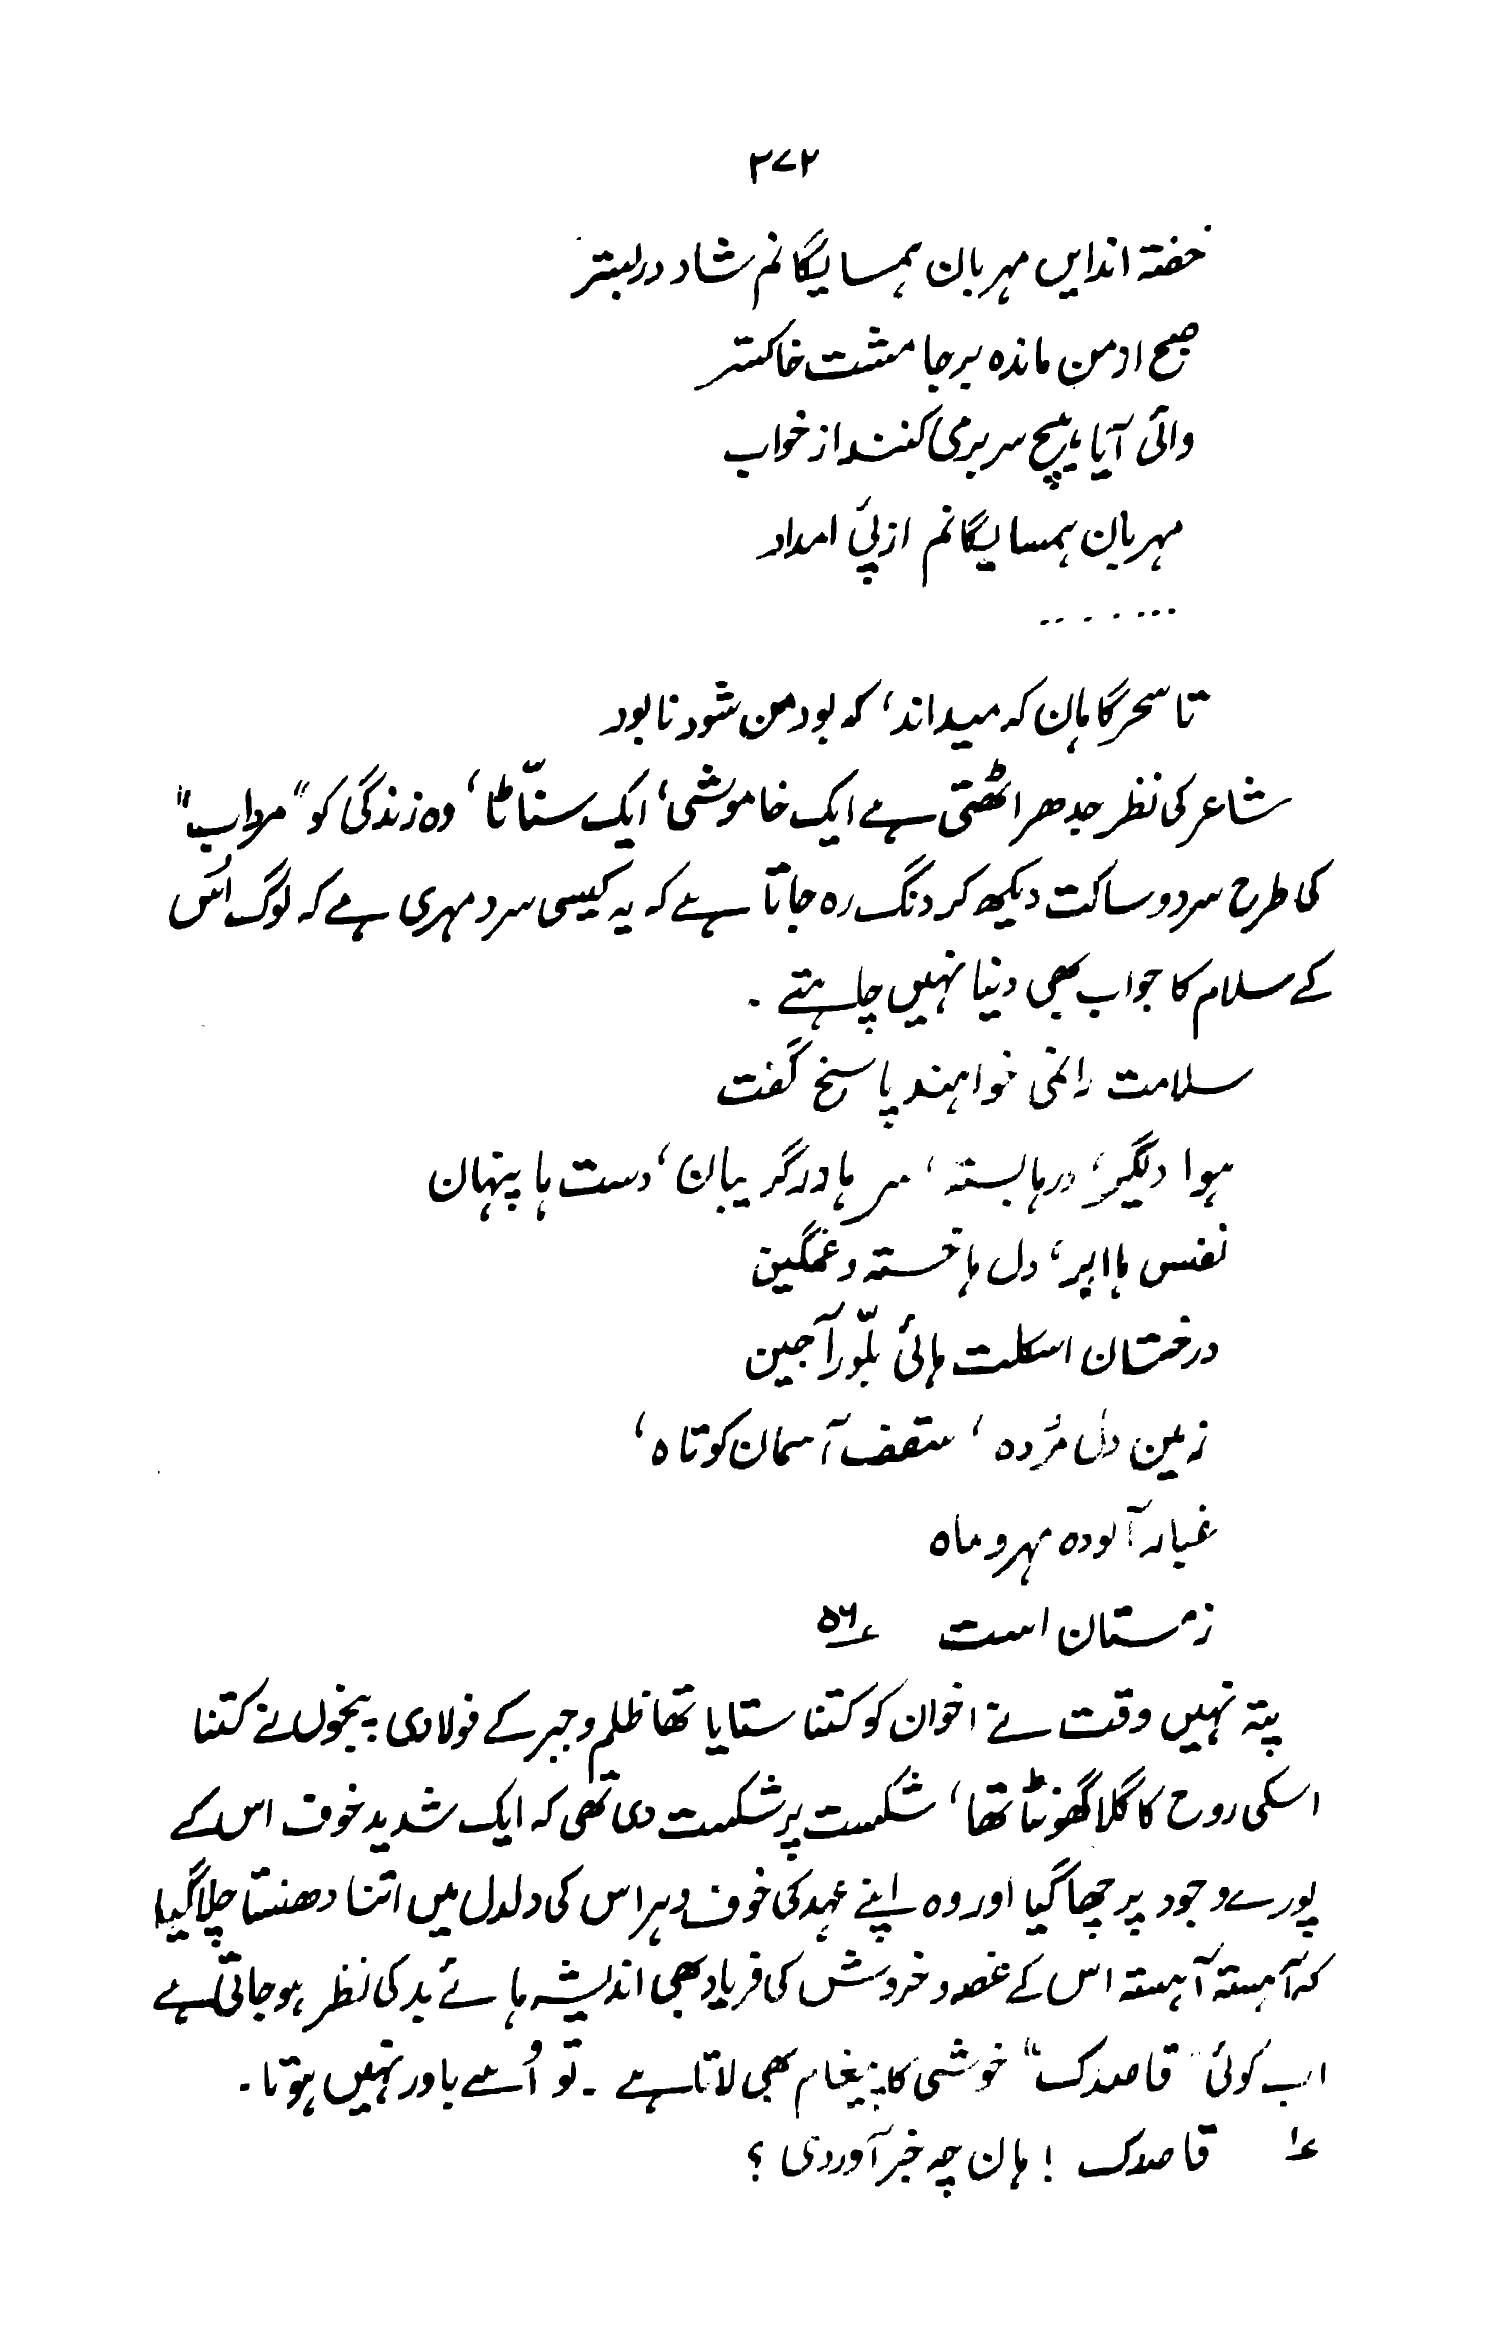 ۳۷۲
خفتہ اندایں مہربان ہمسایگانم شاد دربستر
صبح ازمن ماندہ برجا مشت خاکستر
وائی آیا ہیچ سربرمی کنند از خواب
مہربان ہمسایگانم ازپئ امداد
.......
تا سحرگاہان کہ میداند، کہ بودمن شود نابود
شاعر کی نظر جدھر اٹھتی ہے ایک خاموشی، ایک سنّاٹا، وہ زندگی کو "مرداب"
کی طرح سرد و ساکت دیکھ کر دنگ رہ جاتا ہے کہ یہ کیسی سرد مہری ہے کہ لوگ اُس
کے سلام کا جواب بھی دینا نہیں چاہتے ۔
سلامت رانمی خواہند پاسخ گفت
ہوا دلگیر، درہا بستہ، سر ہا درگریبان، دست ہا پنہان
نفس ہا ابر، دل ہا خستہ و غمگین
درختان اسکلت ہائی بلّور آجین
زمین دل مُردہ، سقف آسمان کوتاہ،
غبار آلودہ مہر و ماہ
زمستان است ؏۵۶
پتہ نہیں وقت نے اخوان کو کتنا ستایا تھا ظلم و جبر کے فولادی پنجوں نے کتنا
اسکی روح کا گلا گھونٹا تھا، شکست پر شکست دی تھی کہ ایک شدید خوف اس کے
پورے وجود پر چھا گیا اور وہ اپنے عہد کی خوف و ہراس کی دلدل میں اتنا دھنستا چلا گیا
کہ آہستہ آہستہ اس کے غصہ و خروش کی فریاد بھی اندیشہ ہائے بد کی نظر ہو جاتی ہے
اب کوئی "قاصدک" خوشی کا پیغام بھی لاتا ہے ۔ تو اُسے باور نہیں ہوتا ۔
؏۱ قاصدک ! ہان چہ خبر آوردی ؟